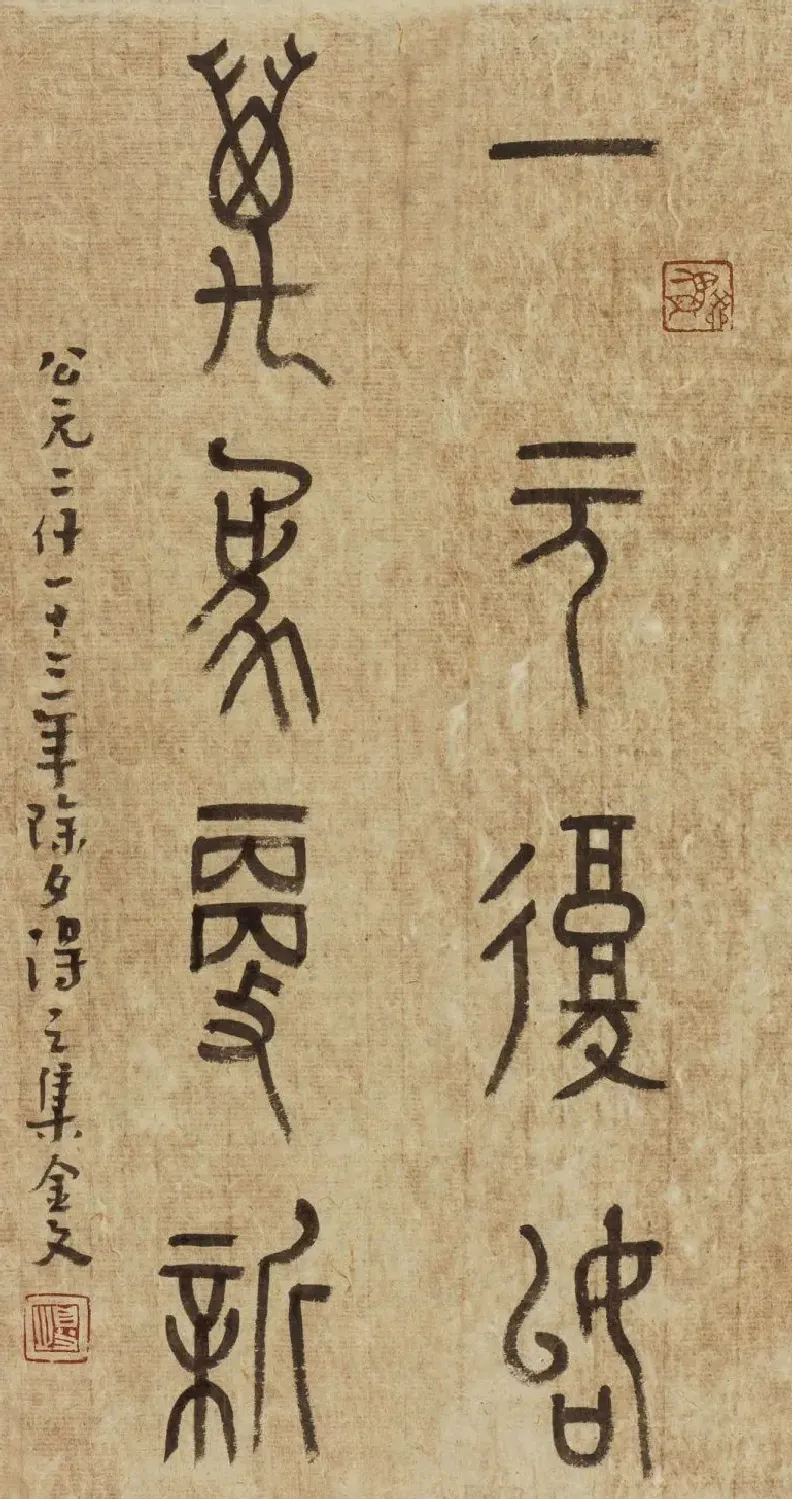 一元復始
萬象更新
公元二仟一十三年除夕得之集金文